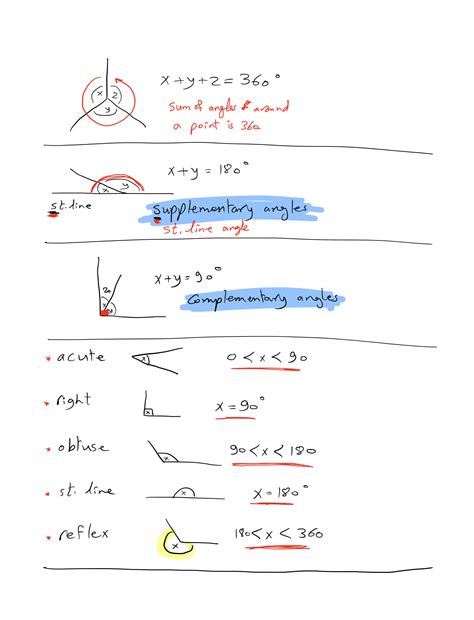 x
2
y
x+y+2=360°
sum of angles around
a point is 360
x
y
x+y = 180°
st.line
supplementary angles
st. line angle
20
x
y
x+y=90°
complementary angles
acute
x
0<x<90
right
x
x=90°
obtuse
x
90<x<180
st. line
x
x=180°
reflex
x
180<x<360